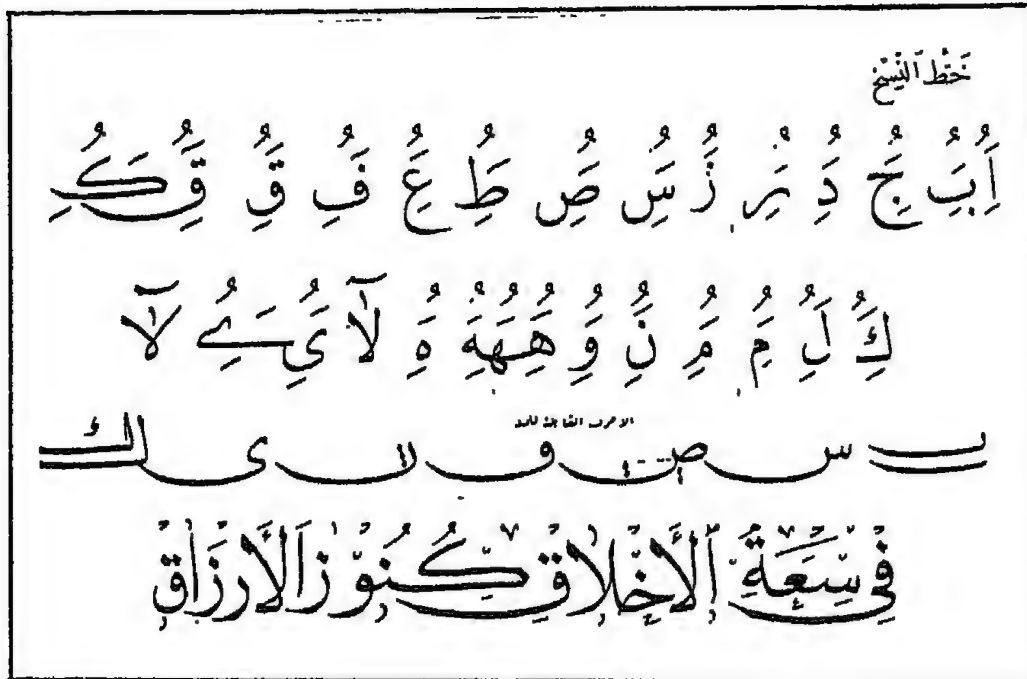 خَط اَلنَّسِخ
اَُِ بَُِ جَُِ دَُِ رَُِ زَُ سَُِ صَُِ طَُِ عَُِ فَُِ قَُِ قَُِ كَُِ
كَُِ لَُِ مَُِ مَُِ نَُِ وَُِ هَُِهَُِهَُِ هَُ لآ يَُِ ےَُِ لآ
الاحرف القابلة للمد
ب س ص ف ن ى ك
فِي سِعَةِ اَلْأَخْلَاقِ كُنُوْزُ اَلْأَرْزَاقِ